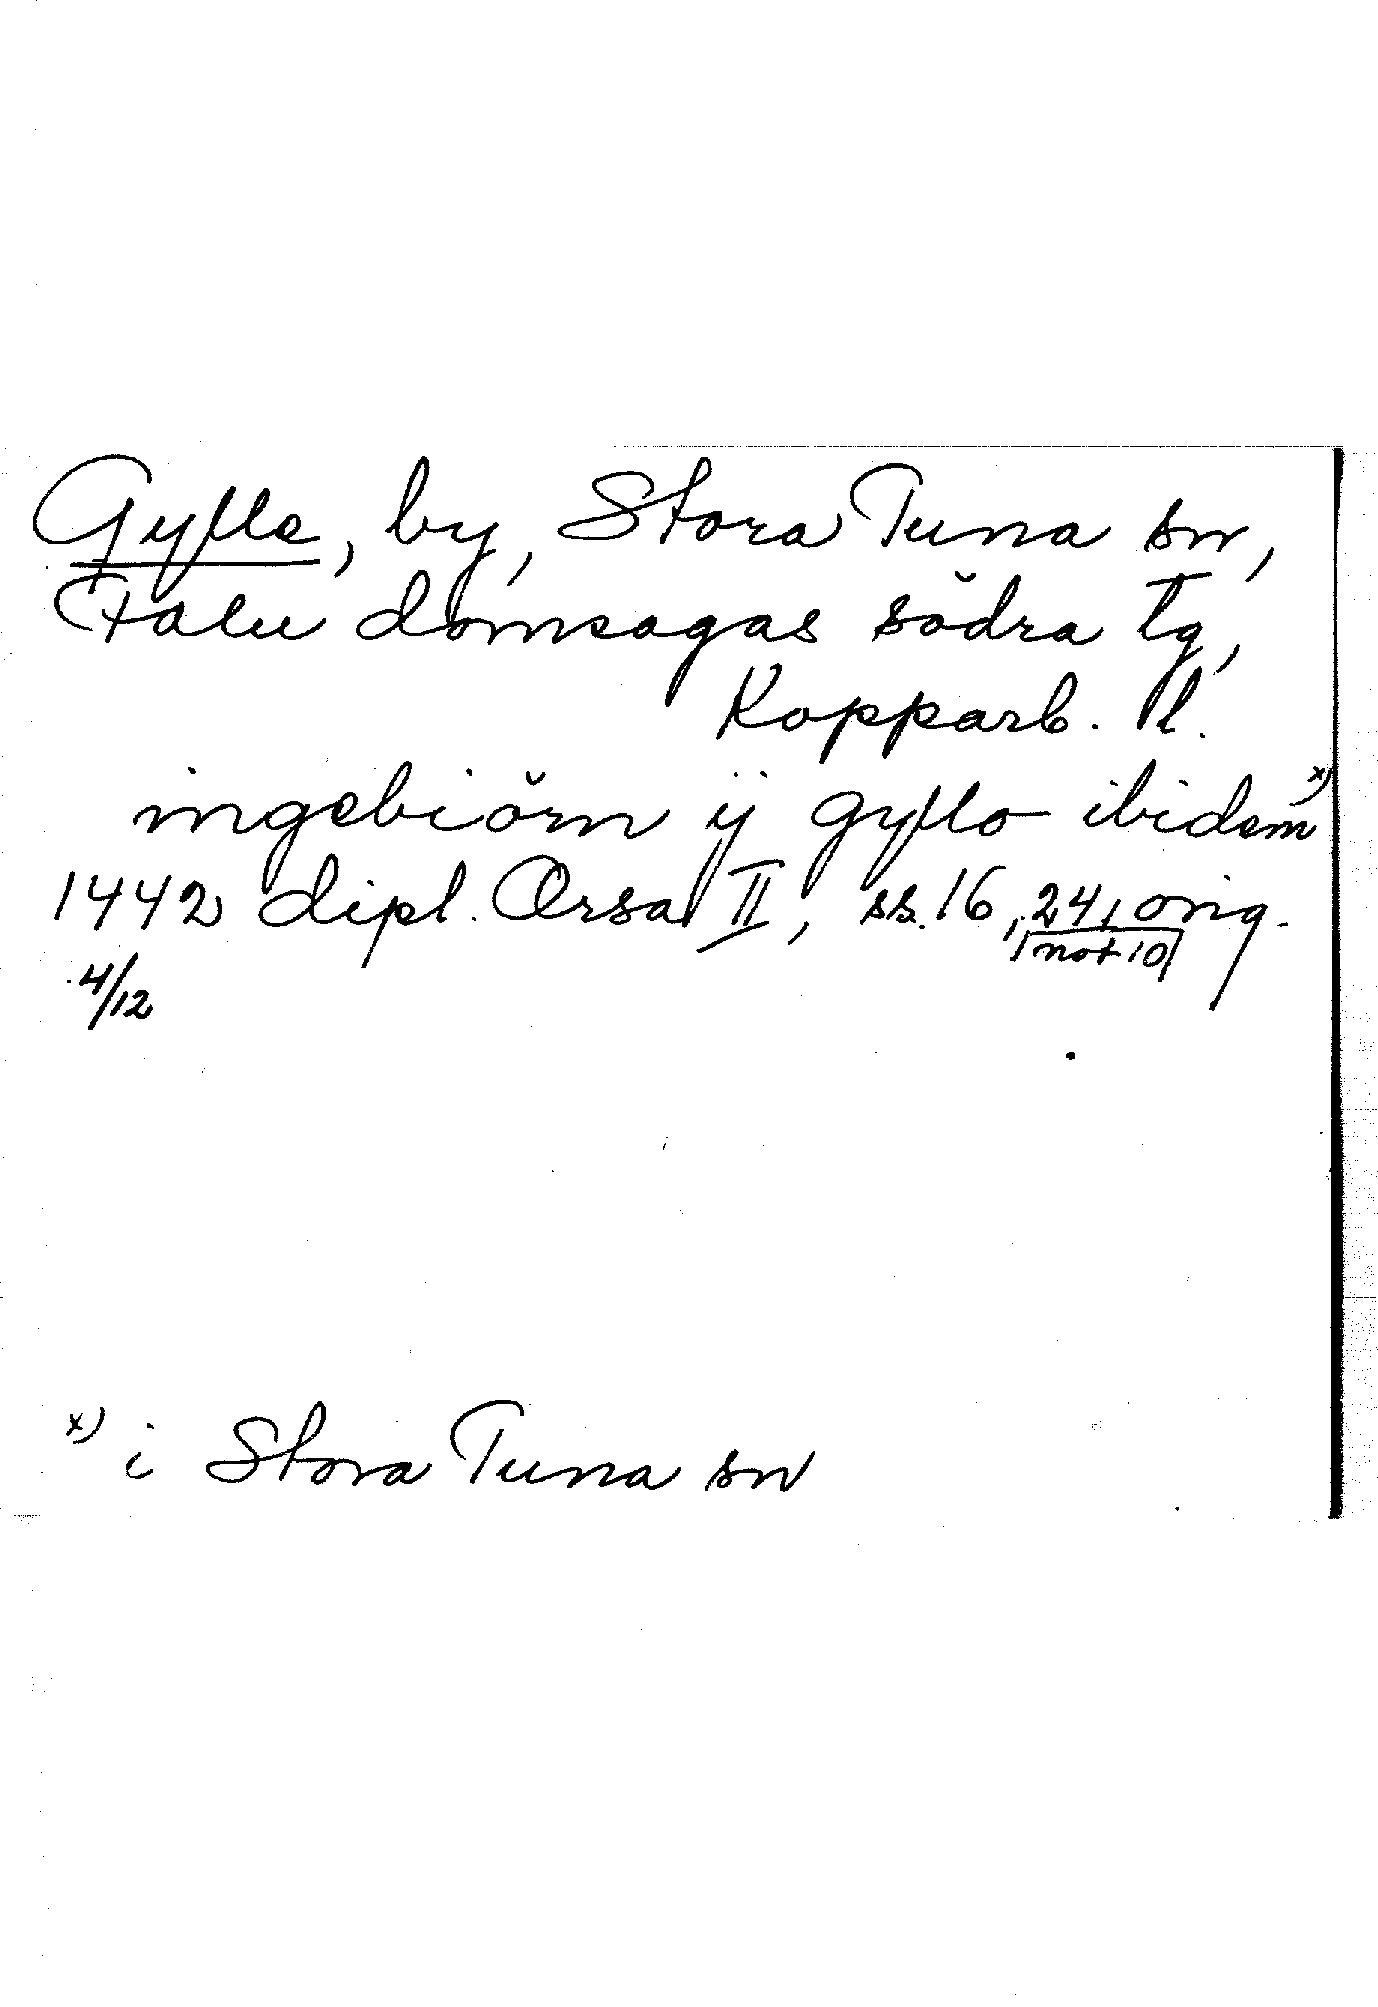 Gylle, by, Stora Tuna sn,
Falu domsagas södra tg,
Kopparb. l.
ingebiörn ij gyllo ibidem x)
1442 dipl. Orsa II, ss. 16, 24, orig.
not 10
4/12
x) i Stora Tuna sn